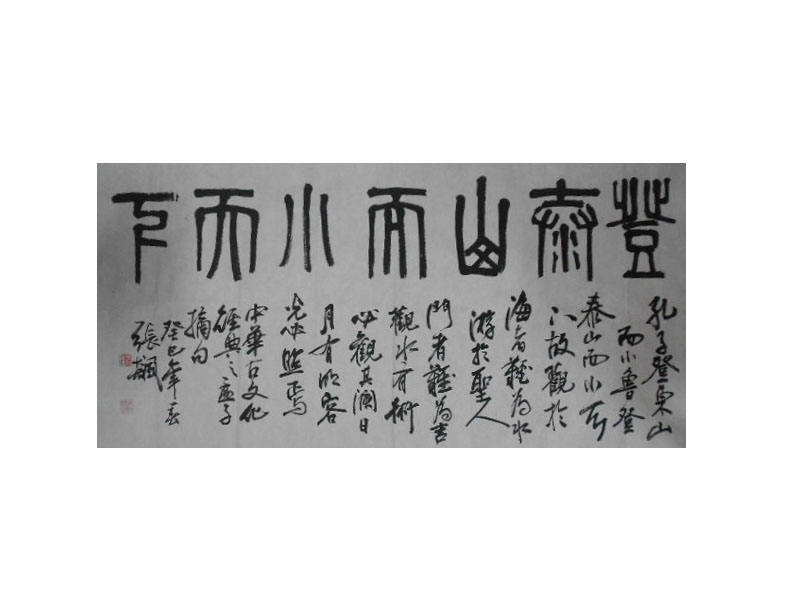 登泰山而小天下
孔子登東山
而小魯登
泰山而小天
下故觀於
海者難為水
游於聖人
門者難為言
觀水有術
必觀其瀾日
月有明容
光必照焉
中華古文化
經典之孟子
摘句
癸巳年春
張飆